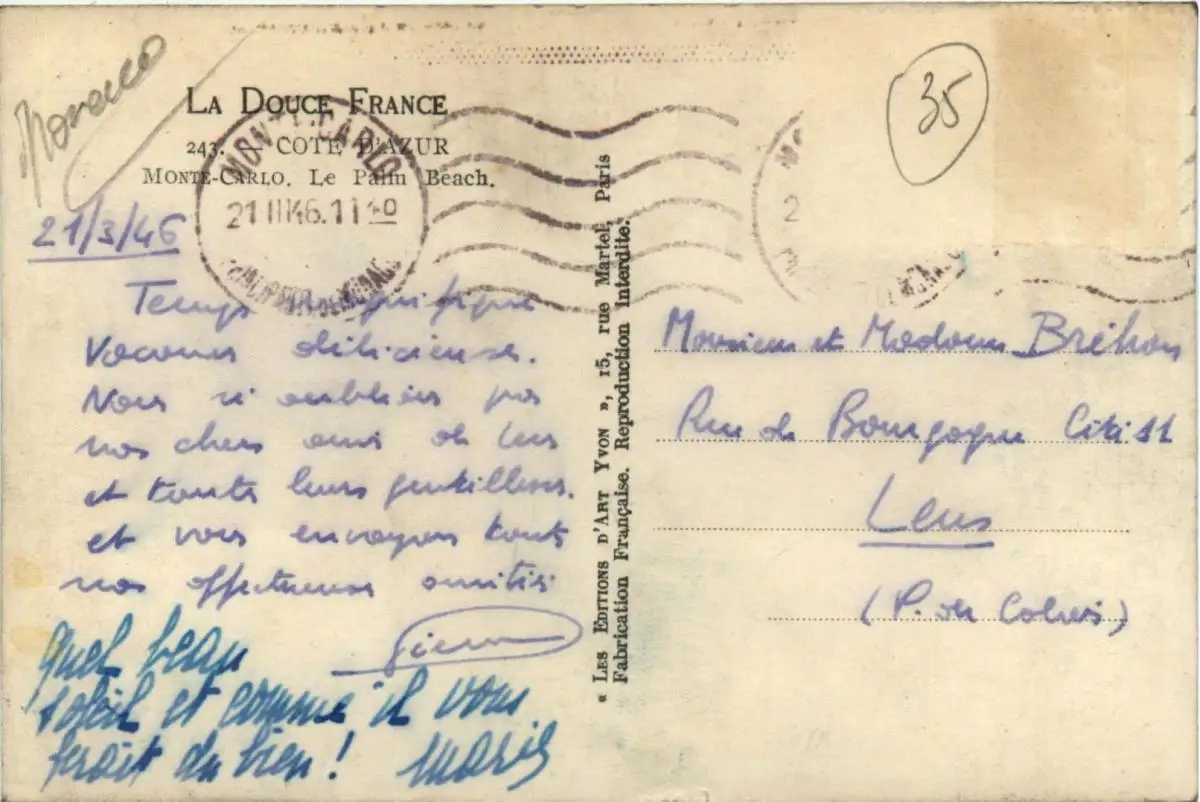 Monaco
35
LA DOUCE FRANCE
243. COTE D'AZUR
MONTE-CARLO. Le Palm Beach.
MONTE-CARLO
21 III 46. 11 40
21/3/46
Temps magnifique
Vacances délicieuses.
Nous n'oublions pas
nos chers amis de Lens
et toutes leurs gentillesses.
et vous envoyons toutes
nos affectueuses amitiés
Quel beau
soleil et comme il vous
ferait du bien !
« LES EDITIONS D'ART YVON », 15, rue Martel, Paris
Fabrication Française. Reproduction Interdite.
Monsieur et Madame Bréhon
Rue de Bourgogne Cité 11
Lens
(P. de Calais)